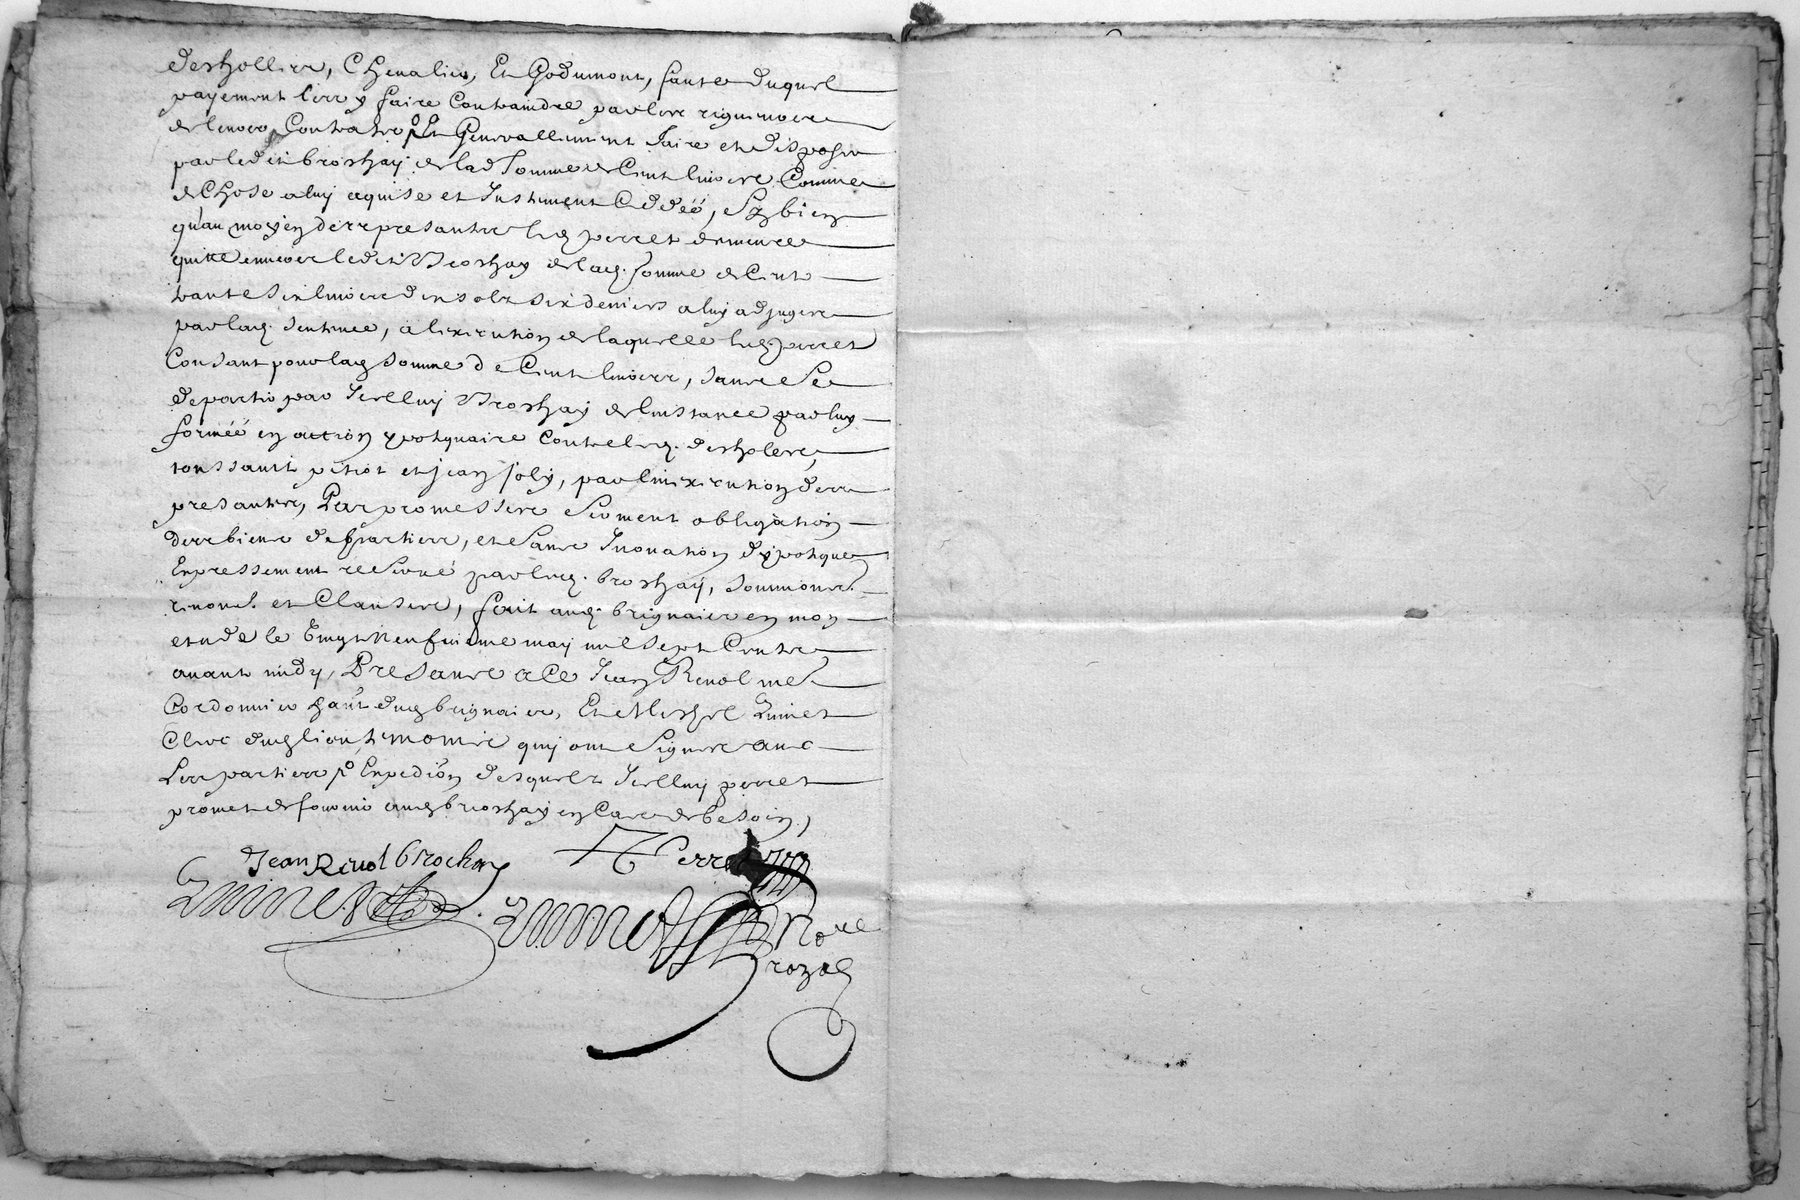 deshollier, Chevalier, Et Godumont, faute duquel
payement les y faire Contraindre par les rigueurs
de leurs Contratz, Et Generallement faire et disposer
par ledit broshay de lad somme de Cent livres Comme
de Chose a luy aquise et Justement Ceddéé, Sy bien
qu'au moyen des presantes led perret demeure
quitte envers ledit Broshay de lad. somme de Cent
trante six livres dix solz six deniers a luy adjugés
par lad. sentence, a l'exécution de laquelle led. perret
Consant pour lad somme de Cent livres, sans Se
departir par Icelluy Broshay de linstance par luy
forméé en action ypotquaire Contre lesd. desholere,
toussaint pitiot et jean joly, par linexecution des
presantes, Par promesses Serment obligation
des biens des parties, et Sans Inovation dypotque
Expressement reservé par led. broshay, soumions.
renond. et Clauses, fait aud. brignais en mon
etude le Vingt Neufvieme may mil sept Centz
avant midy, Presans a Ce Jean Renol me.
Cordonnier hant. dud brignais, Et Michel Quinet
Clerc dud lieu temoins quy ont Signés avec
Les parties po Expedion desquelz Icelluy perret
promet de fournir aud broshay en Cas de besoin,
Jean Renol brochay Perret
Quinet Quinet Nore
rozal